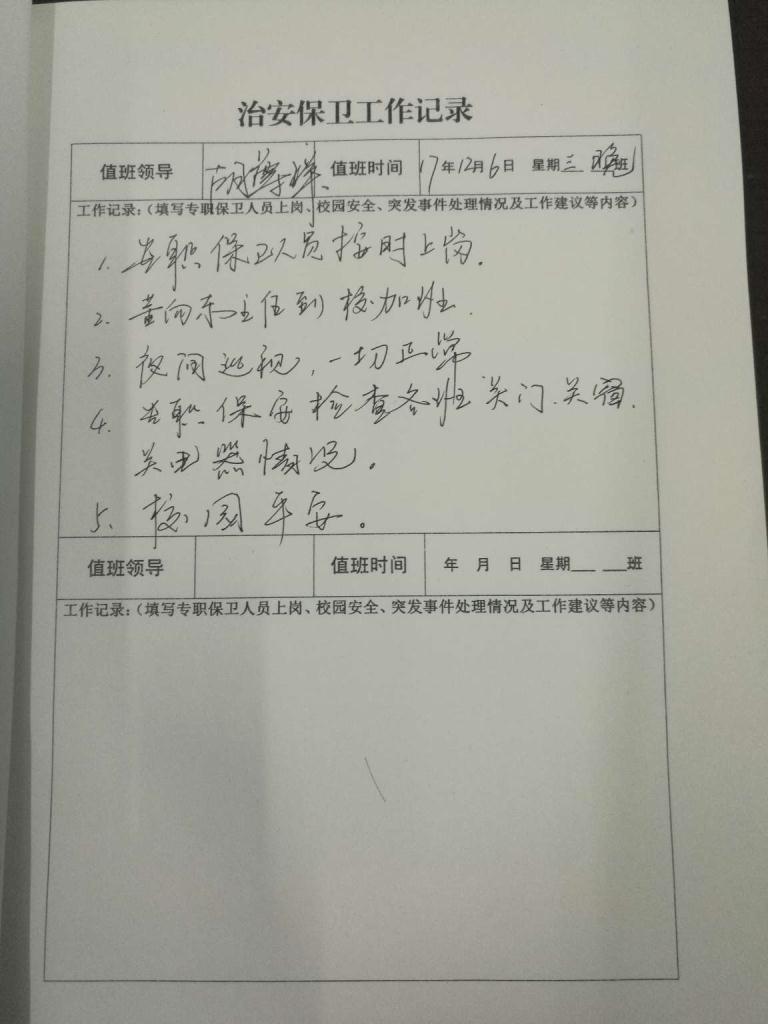 治安保卫工作记录
值班领导 胡 祥 值班时间 17年12月6日 星期三 晚班
工作记录:(填写专职保卫人员上岗、校园安全、突发事件处理情况及工作建议等内容)
1. 专职保卫人员按时上岗.
2. 黄向东主任到校加班.
3. 夜间巡视,一切正常
4. 专职保安检查各班关门、关窗.
关电器情况。
5. 校园平安。
值班领导 值班时间 年 月 日 星期___ ___班
工作记录:(填写专职保卫人员上岗、校园安全、突发事件处理情况及工作建议等内容)